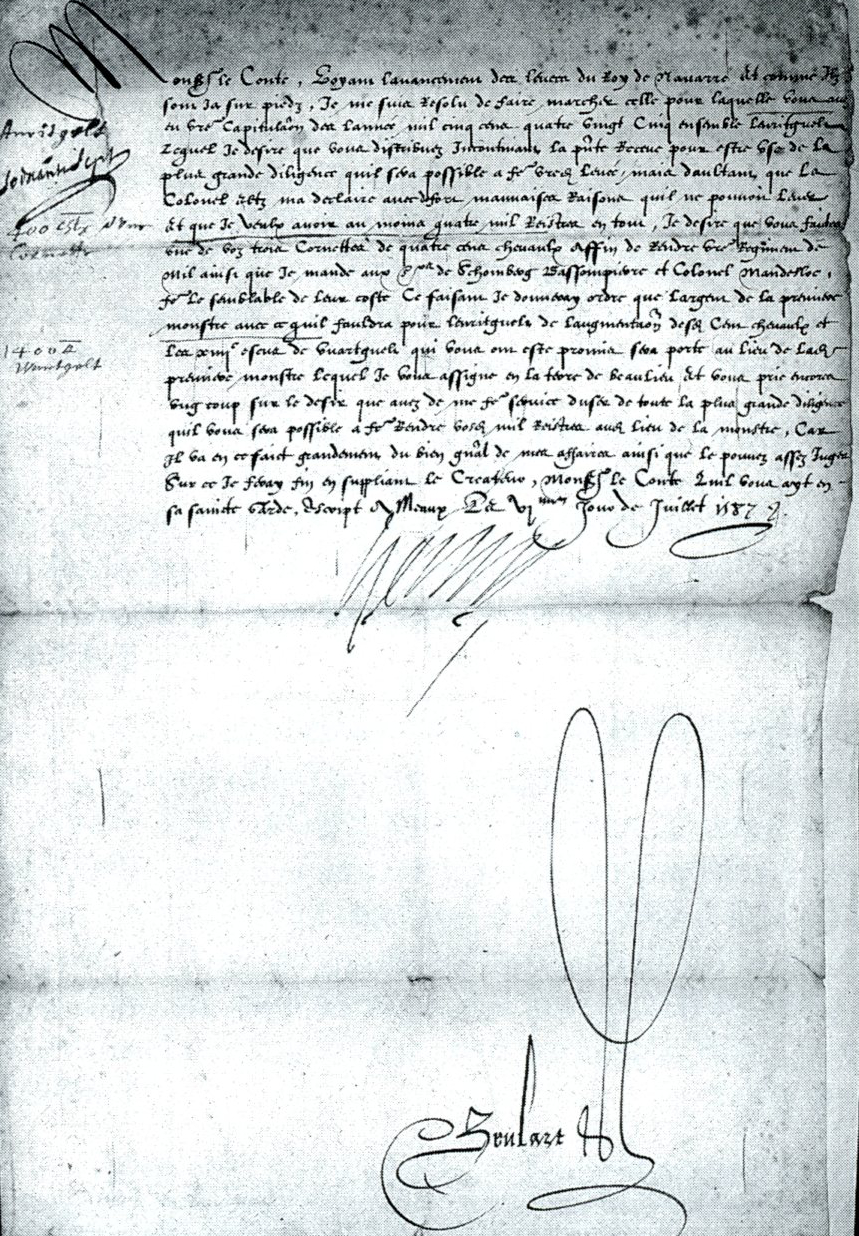 Monsr le Conte, Voyant lavancement des levees du Roy de Navarre Et comme Ilz
sont Ja sur piedz, Je me suis Resolu de faire marcher celle pour laquelle vous
en vre Capitulaōn de lannee mil cinq cens quatre vingt Cinq ensemble
Lequel Je desire que vous distribuez Incontinant la pnte Receue pour estre Usé de La
plus grande diligence quil sera possible a fe vred Levee, mais daultant que Le
Colonel ma declaire avec fort mauvaises Raisons quil ne pouvoit Lever
Et que Je veulx avoir au moins quatre mil Reistres en tout, Je desire que vous
une de voz trois Cornettes de quatre cens chevaulx Affin de Rendre vre Regiment de
Mil ainsi que Je mande aux Srs de Schomberg Bassompierre et Colonel
fe le semblable de leur coste Ce faisant Je donneray ordre que Largent de la premiere
monstre avec ce quil fauldra pour de Laugmentaōn desd Cent chevaulx et
Les xiiiic escuz de qui vous ont este promis sera porte au lieu de Lad
premiere monstre Lequel Je vous assigne en la terre de beaulieu Et vous prie encores
ung coup sur le desir que avez de me fe service duser de toute la plus grande diligence
quil vous sera possible a fe Rendre vosd mil Reistres aud Lieu de la monstre, Car
Il va en ce faict grandement du bien gnal de mes affaires ainsi que le pouvez assez Juger
Sur ce Je feray fin en suppliant le Createur, Monsr le Conte Quil vous ayt en
sa saincte Garde, Escript a Meaux Le vime Jour de Juillet 1587
Anritgelt
400 Cornette
1400
Henry
Brulart